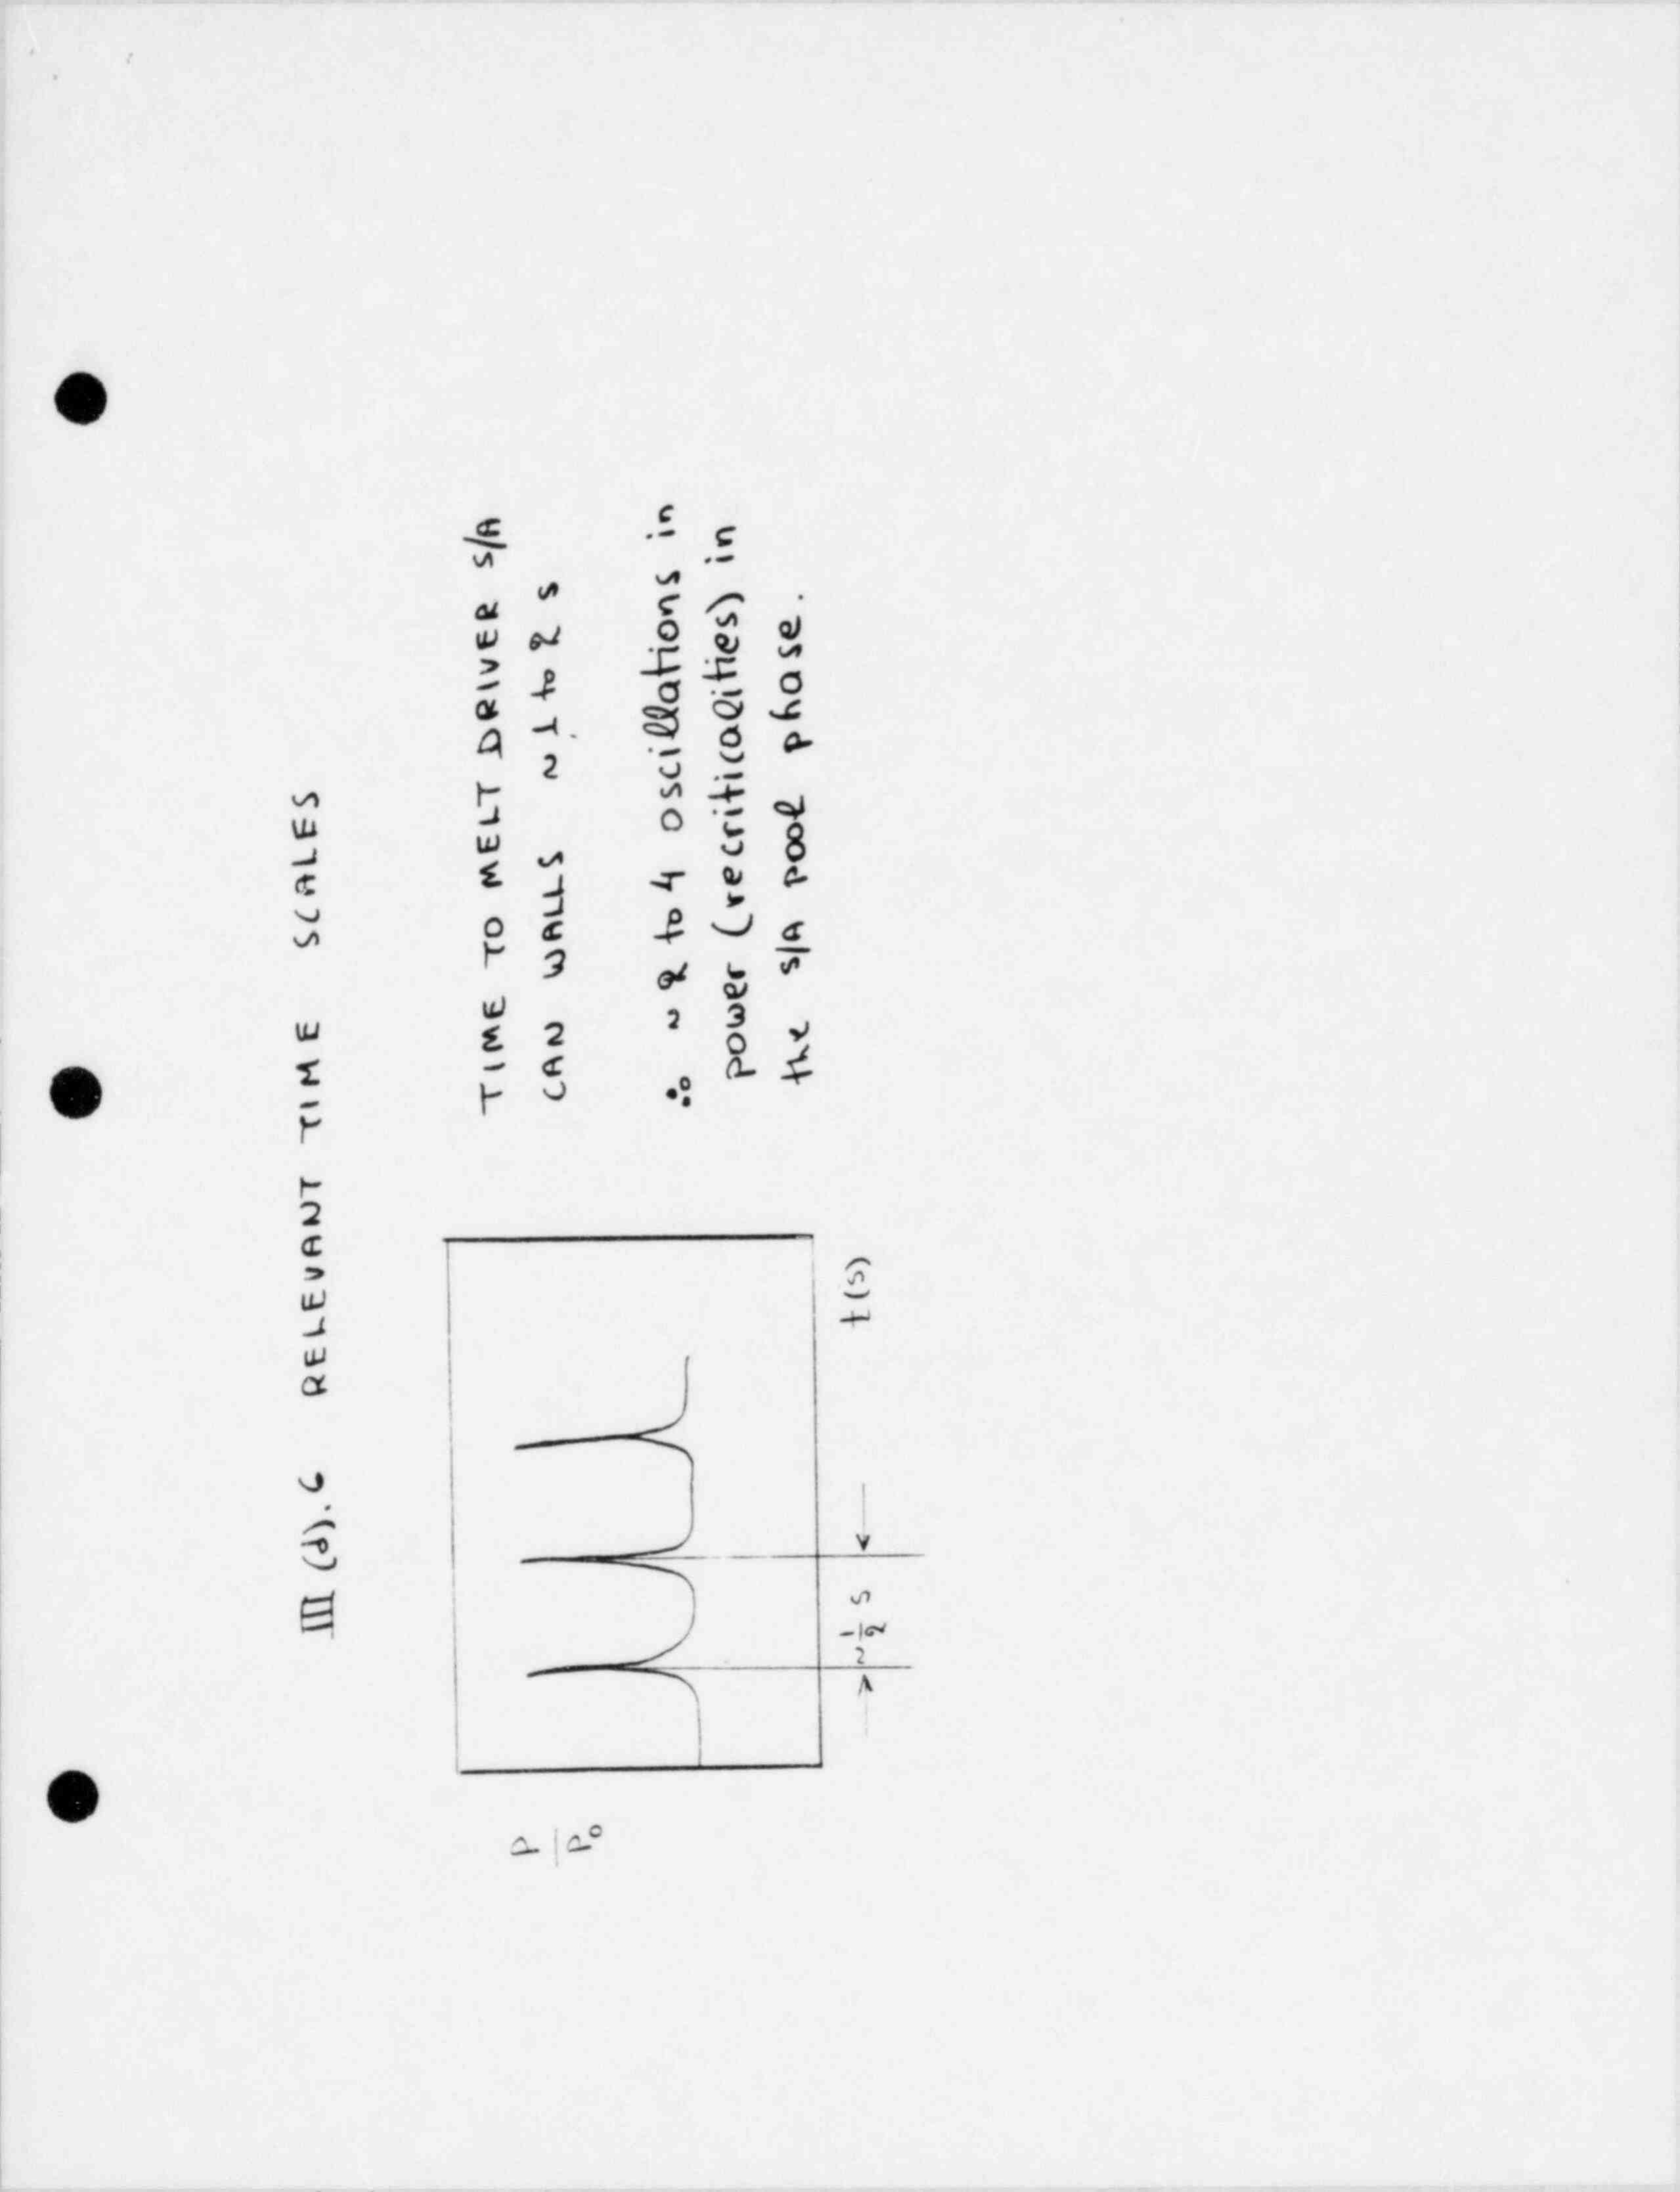 III (d).6 RELEVANT TIME SCALES
P
P₀
~ 1/2 s
t(s)
TIME TO MELT DRIVER S/A
CAN WALLS ~ 1 to 2 s
∴ ~ 2 to 4 oscillations in
power (recriticalities) in
the S/A pool phase.